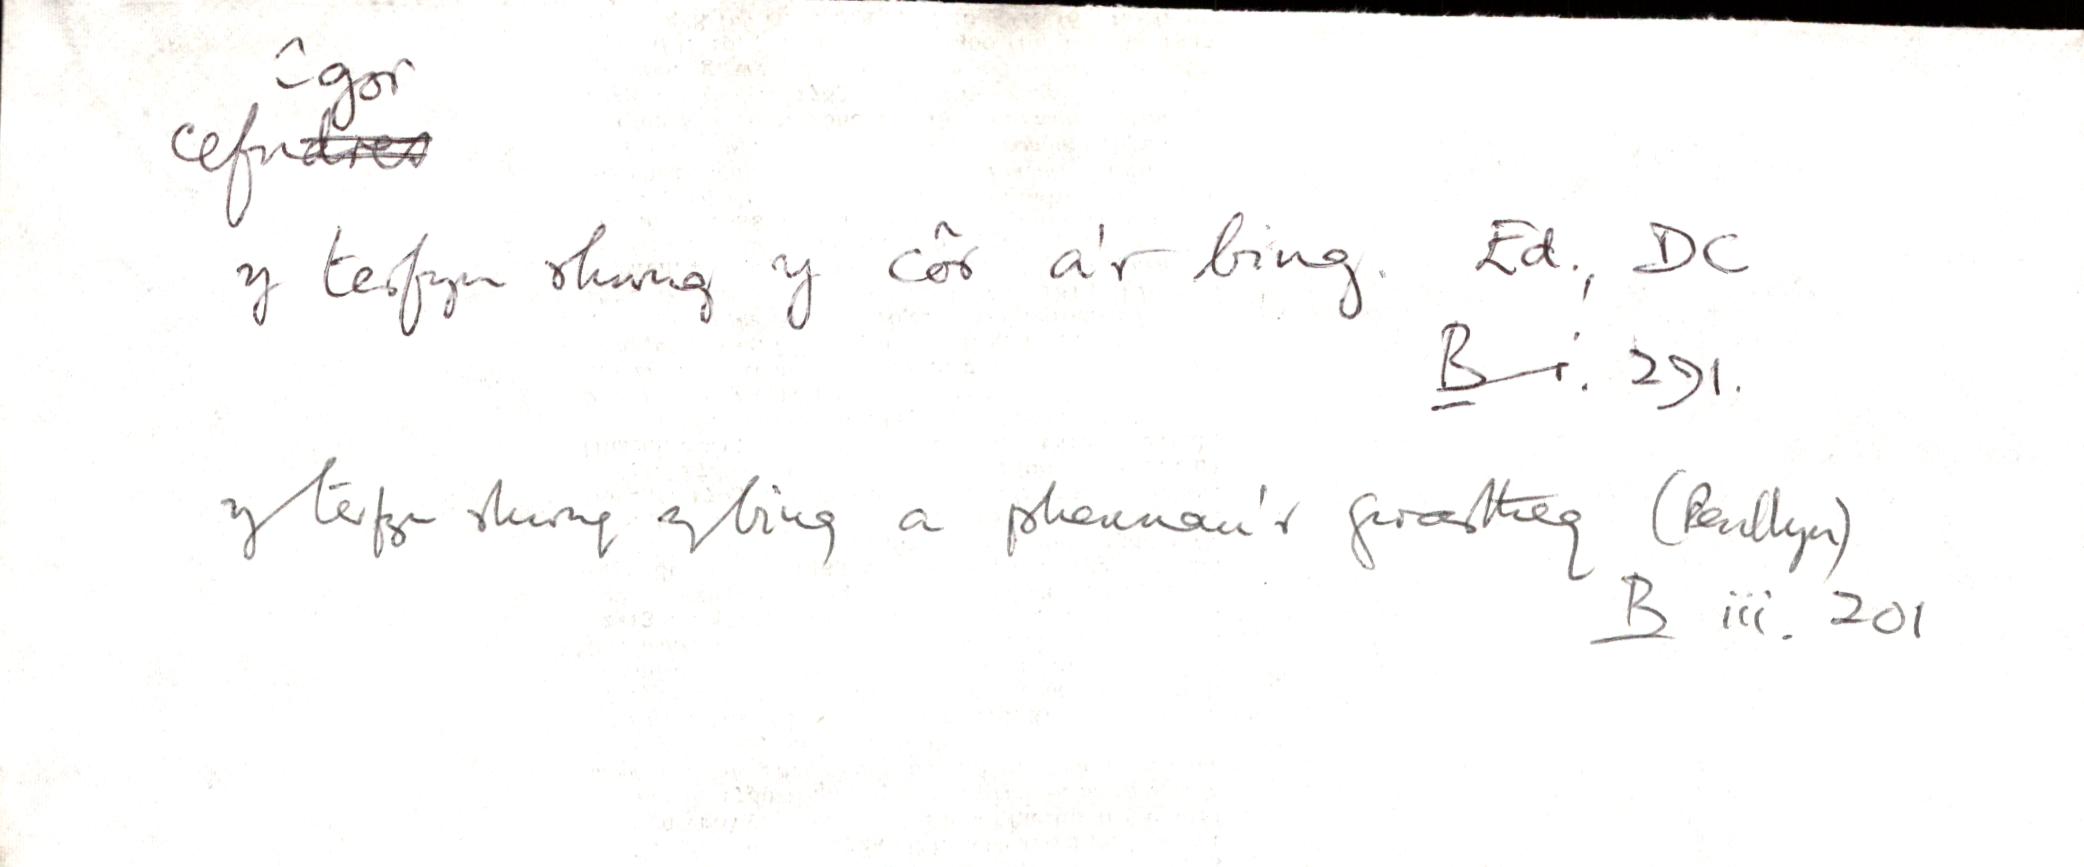 -gor
cefndres
y terfyn rhwng y côr a'r bing. Ed., DC
B i. 291.
y terfyn rhwng y bing a phennau'r gwartheg (Penllyn)
B iii. 201